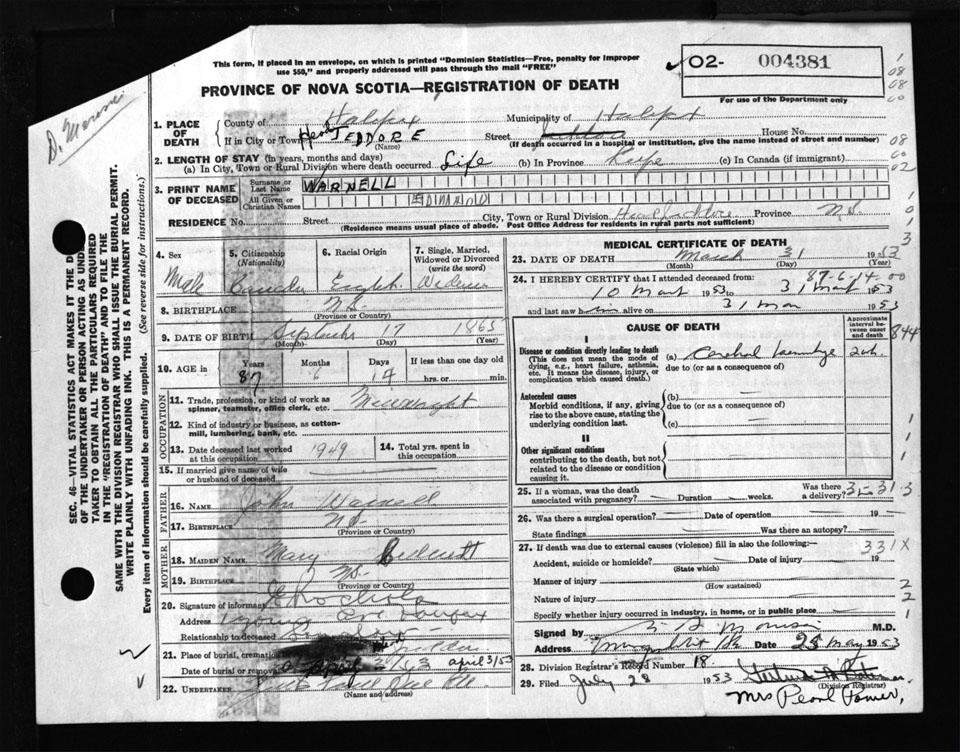 This form, if placed in an envelope, on which is printed "Dominion Statistics—Free, penalty for improper
use $50," and properly addressed will pass through the mail "FREE"
PROVINCE OF NOVA SCOTIA—REGISTRATION OF DEATH
✓ 02- 004381
For use of the Department only
D. Morrison
1. PLACE OF DEATH
County of Halifax Municipality of Halifax
If in City or Town Head JEDDORE Street House No.
(Name) (If death occurred in a hospital or institution, give the name instead of street and number)
2. LENGTH OF STAY (in years, months and days)
(a) In City, Town or Rural Division where death occurred Life (b) In Province Life (c) In Canada (if immigrant)
3. PRINT NAME OF DECEASED
Surname or Last Name WARNELL
All Given or Christian Names
RESIDENCE No. Street City, Town or Rural Division Head Jeddore Province N.S.
(Residence means usual place of abode. Post Office Address for residents in rural parts not sufficient)
4. Sex
Male
5. Citizenship
(Nationality)
Canada
6. Racial Origin
English
7. Single, Married,
Widowed or Divorced
(write the word)
Widower
8. BIRTHPLACE N.S.
(Province or Country)
9. DATE OF BIRTH September 17 1865
(Month) (Day) (Year)
10. AGE in
Years Months Days If less than one day old
87 6 14 hrs. or min.
OCCUPATION
11. Trade, profession, or kind of work as
spinner, teamster, office clerk, etc. Millwright
12. Kind of industry or business, as cotton-
mill, lumbering, bank, etc.
13. Date deceased last worked
at this occupation 1949
14. Total yrs. spent
in this occupation
15. If married give name of wife
or husband of deceased
FATHER
16. Name John Warnell
17. Birthplace N.S.
(Province or Country)
MOTHER
18. Maiden Name Mary
19. Birthplace N.S.
(Province or Country)
20. Signature of informant
Address Halifax
Relationship to deceased
21. Place of burial, cremation
Date of burial or removal April 3/53
22. Undertaker
(Name and address)
MEDICAL CERTIFICATE OF DEATH
23. DATE OF DEATH March 31 1953
(Month) (Day) (Year)
87-6-14-00
24. I HEREBY CERTIFY that I attended deceased from:
10 Mart 1953 to 31 Mart 1953
and last saw h alive on 31 Mar 1953
CAUSE OF DEATH
Approximate
interval be-
tween onset
and death
844
I
Disease or condition directly leading to death
(This does not mean the mode of
dying, e.g., heart failure, asthenia,
etc. It means the disease, injury, or
complication which caused death.)
(a) Cerebral
due to (or as a consequence of)
Antecedent causes
Morbid conditions, if any, giving
rise to the above cause, stating the
underlying condition last.
(b)
due to (or as a consequence of)
(c)
II
Other significant conditions
contributing to the death, but not
related to the disease or condition
causing it.
25. If a woman, was the death
associated with pregnancy? Duration weeks. Was there
a delivery?
35-31-3
26. Was there a surgical operation? Date of operation 19
State findings Was there an autopsy?
27. If death was due to external causes (violence) fill in also the following:
331X
Accident, suicide or homicide? Date of injury 19
(State which)
Manner of injury
(How sustained)
Nature of injury
Specify whether injury occurred in industry, in home, or in public place
Signed by M.D.
Address Date 25 May 1953
28. Division Registrar's Record Number 18.
29. Filed July 28 1953
(Division Registrar)
Mrs Pearl
SEC. 46—VITAL STATISTICS ACT MAKES IT THE
OF THE UNDERTAKER OR PERSON ACTING AS
TAKER TO OBTAIN ALL THE PARTICULARS REQUIRED
IN THE "REGISTRATION OF DEATH" AND TO FILE THE
SAME WITH THE DIVISION REGISTRAR WHO SHALL ISSUE THE BURIAL PERMIT.
WRITE PLAINLY WITH UNFADING INK. THIS IS A PERMANENT RECORD.
Every item of information should be carefully supplied. (See reverse side for instructions.)